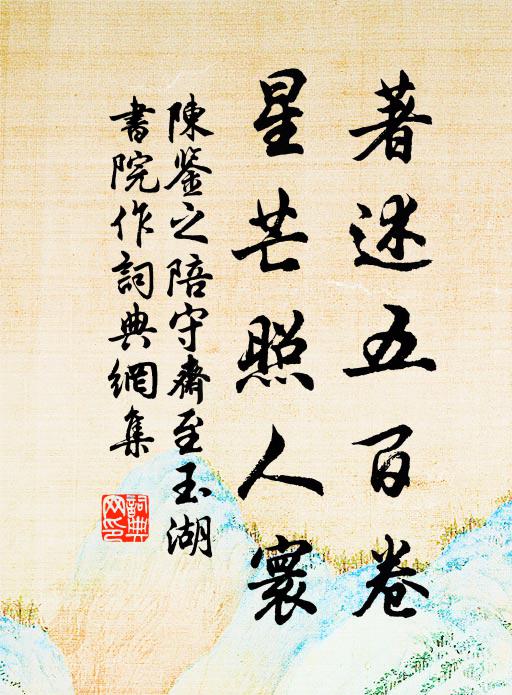 著述五百卷
星芒照人寰
陳鉴之陪守齋至玉湖
書院作詞典網集
詞典网印